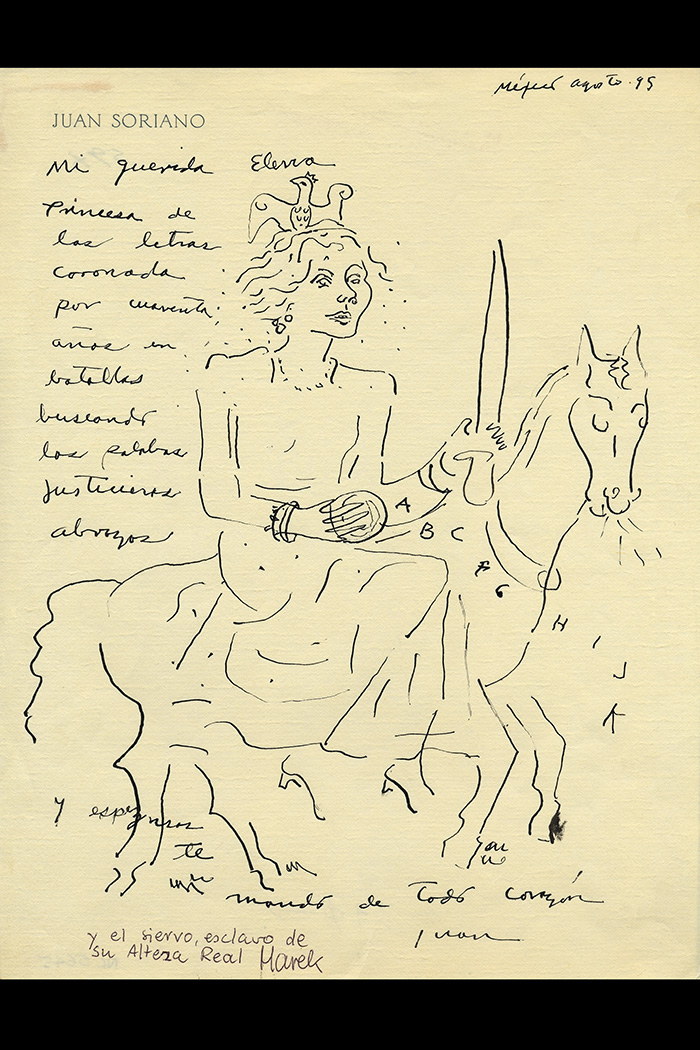 México agosto 95
JUAN SORIANO
Mi querida Elena
Princesa de
las letras
coronada
por cuarenta
años en
batallas
buscando
las palabras
justicieras
abrazos
A
B C
F
G
H
I
J
K
y esperanzas
te
mando de todo corazón
Juan
y el siervo, esclavo de
su Alteza Real Marek